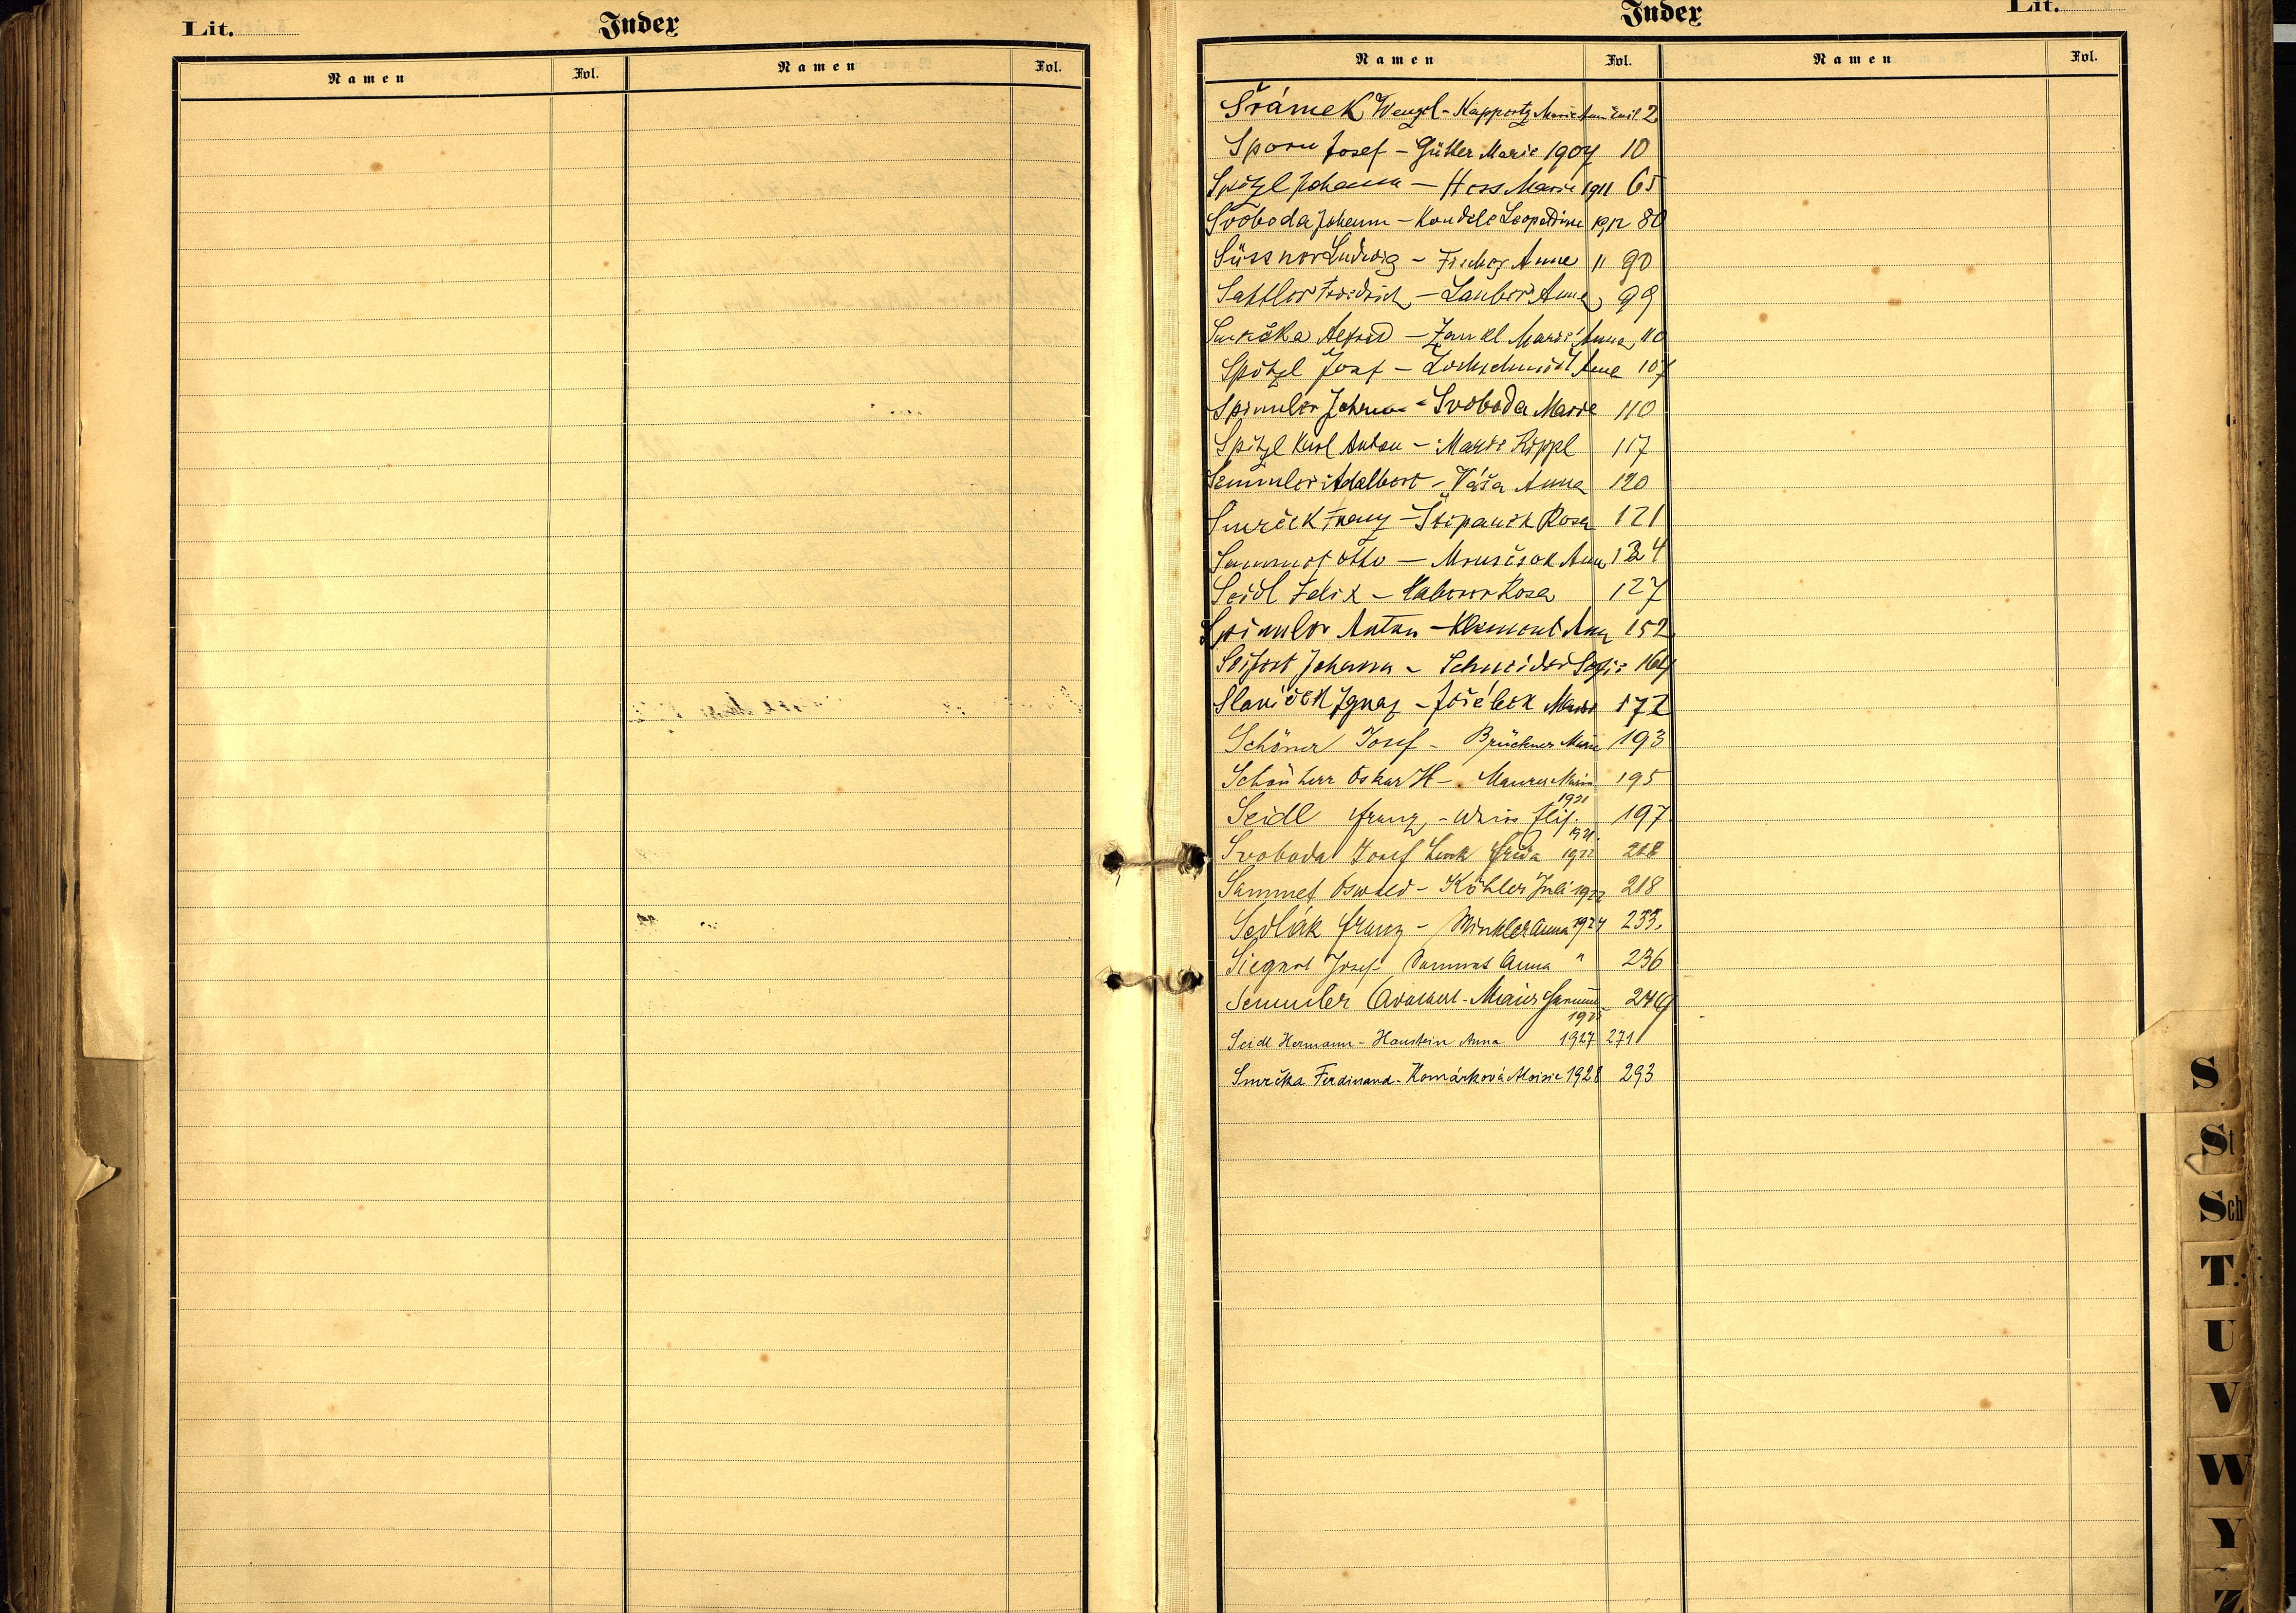 Lit. Index
Namen Fol. Namen Fol.
Index Lit.
Namen Fol. Namen Fol.
Šrámek Wenzel - Marie 2
Sporn Josef - Gütter Marie 1907 10
Spötzl Johann - Hess Marie 1911 65
Svoboda Johann - Kondelo Leopoldine 1912 80
Süssner Ludwig - Fischer Anna " 90
Sattler Friedrich - Lauber Anna 99
Smrčka Alfred - Zankl Marie Anna 110
Spötzl Josef - Lochschmidt Anna 107
Spimler Johann - Svoboda Marie 110
Spitzl Karl Anton - Marie Rippl 117
Semmler Adalbert - Váša Anna 120
Smrček Franz - Štěpanek Rosa 121
Sammet Otto - Anna 124
Seidl Felix - Rosa 127
Spimler Anton - Klement Anna 152
Seifert Johann - Schneider Sofie 164
Slavíček Ignaz - Jeřábek Marie 172
Schöner Josef - Brückner Marie 193
Schönherr Oskar H - Maurer Marie 195
1921
Seidl Franz - Weiss Elis. 197
1921.
Svoboda Josef Lenk Frieda 1922 218
Sammet Oswald - Köhler Juli 1922 218
Sedlák Franz - Winkler Anna 1924 233.
Siegert Josef - Sammet Anna " 236
Semmler Adalbert - Maier 249
1925
Seidl Hermann - Haustein Anna 1927 271
Smrčka Ferdinand - Komárková Aloisie 1928 293
S
St
Sch
T
U
V
W
Y
Z